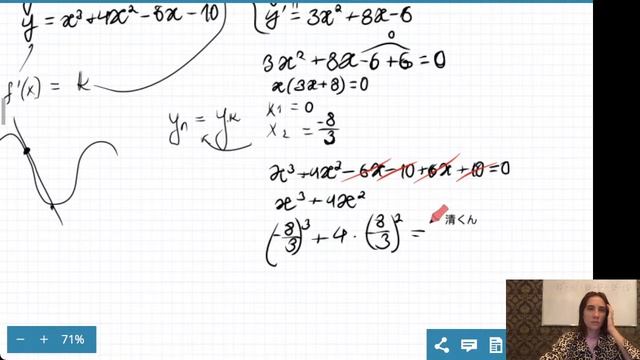 y = x³ + 4x² - 6x - 10
y' = 3x² + 8x - 6
f'(x) = k
0
3x² + 8x - 6 + 6 = 0
x(3x + 8) = 0
x₁ = 0
yₙ = yₖ
x₂ = -8/3
x³ + 4x² - 6x - 10 + 6x + 10 = 0
x³ + 4x²
(-8/3)³ + 4 · (8/3)² =
清くん
71%